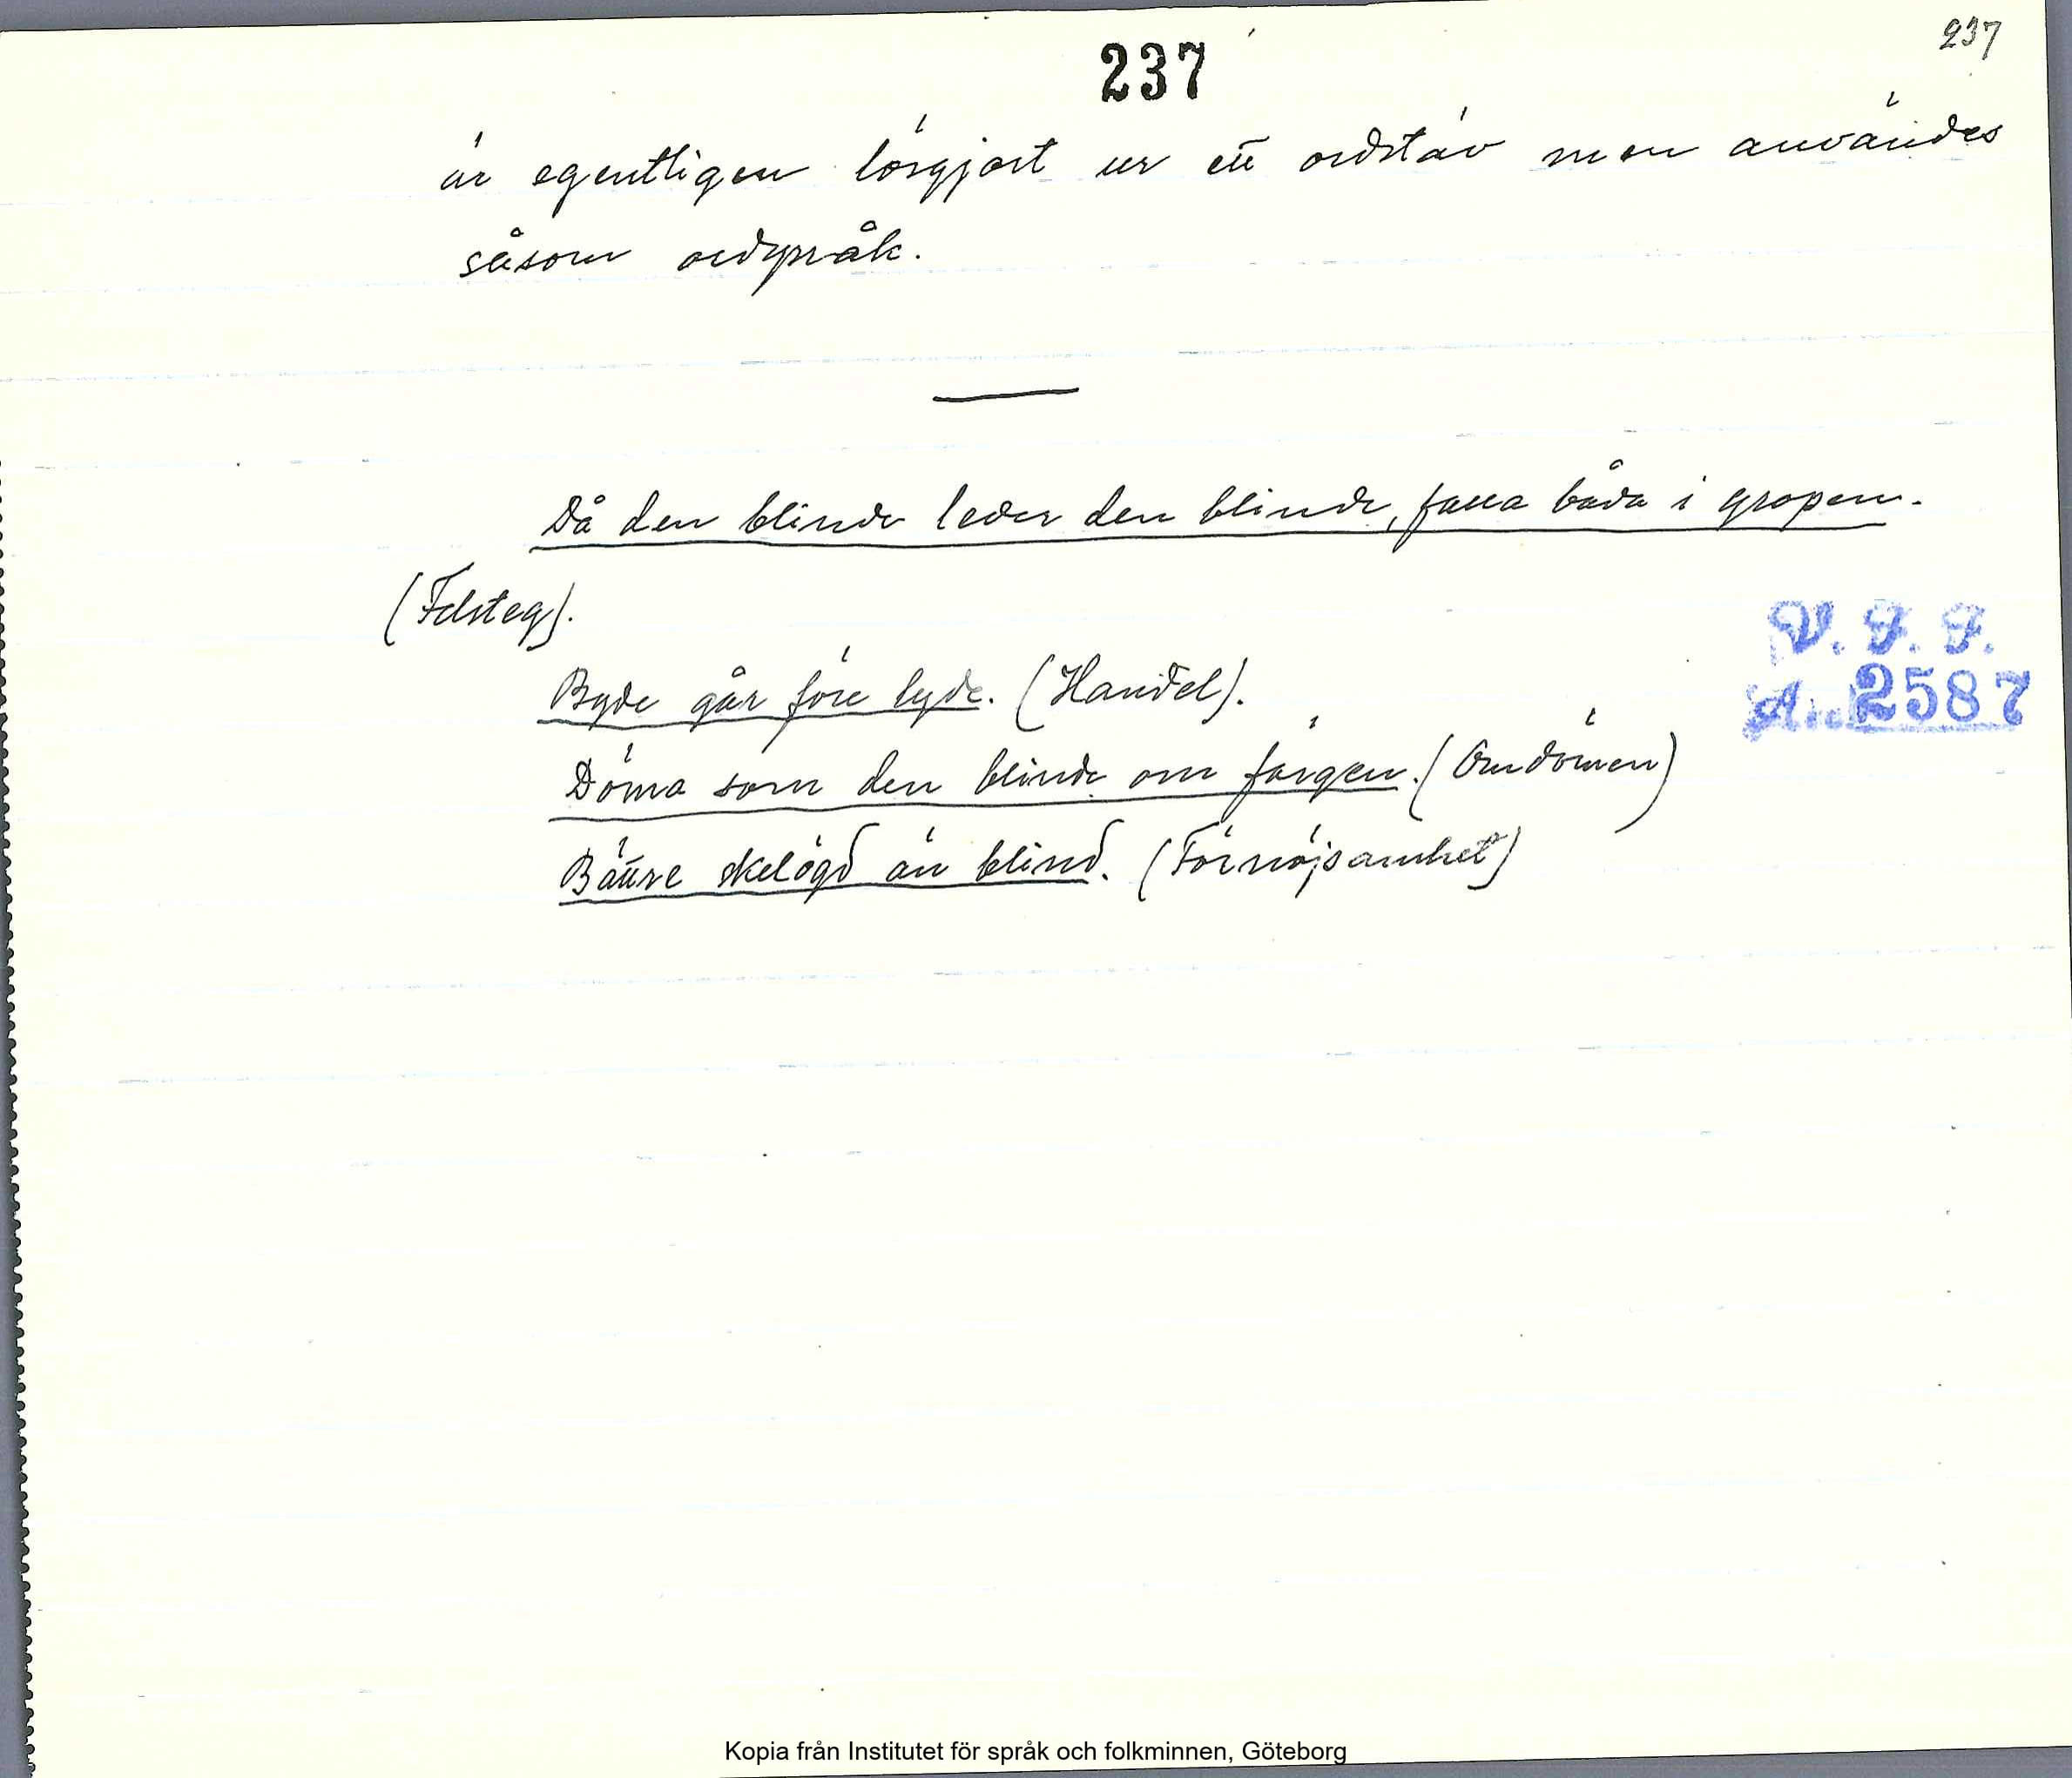 237
237
är egentligen lösgjort ur ett ordstäv men användes
såsom ordspråk.
Då den blinde leder den blinde, falla båda i gropen.
(Felsteg).
Byde går före lyde. (Handel).
Döma som den blinde om färgen. (Omdömen)
Bättre skelögd än blind. (Förnöjsamhet)
V. F. F.
Acc 2587
Kopia från Institutet för språk och folkminnen, Göteborg